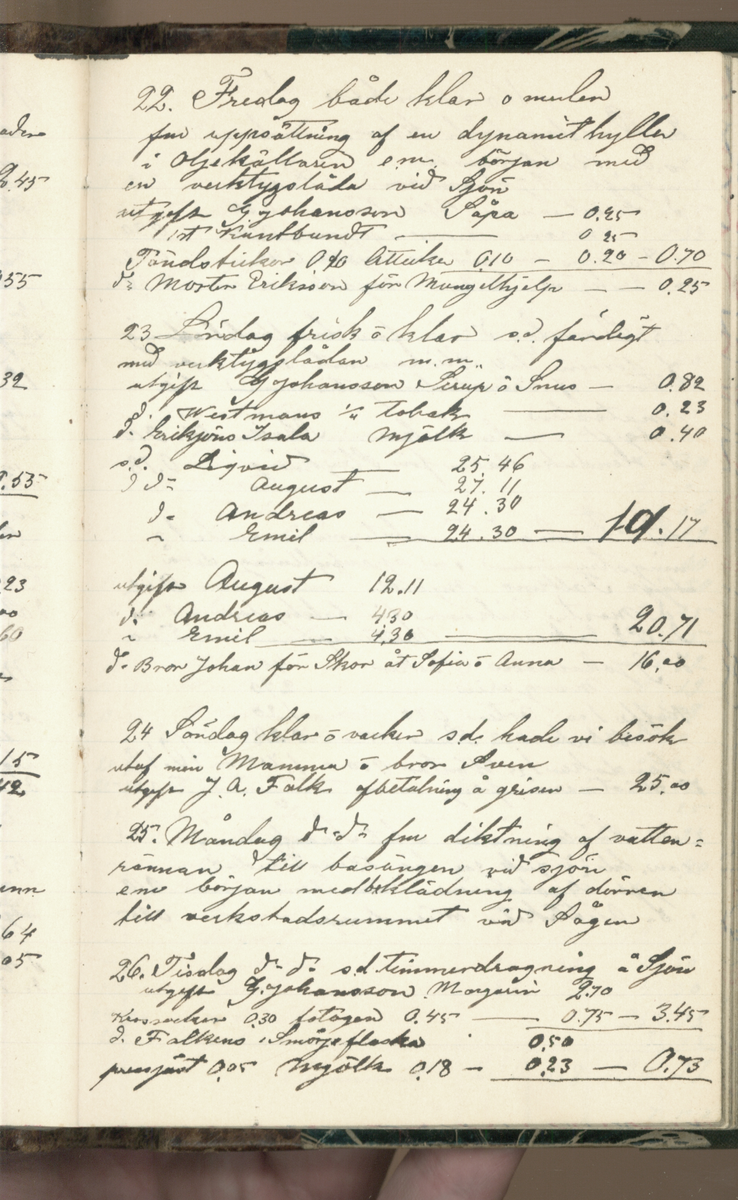 22. Fredag både klar o mulen
fm uppsättning af en dynamithyller
i oljekällaren em. början med
en verktygslåda vid Sjön
utgift G Johansson Såpa — 0.25
1st Knutbundt — 0 25
Tändstickor 0.10 Ättika 0.10 — 0.20 — 0.70
d:o Morbr Eriksson för Mangelhjelp — — 0.25
23 Lördag frisk o klar s.d. färdigt
med verktygslådan m.m.
utgift G Johansson Sirup o Snus — 0.82
d. Westmans tobak — 0.23
d. Erikjöns Isala mjölk — 0.40
s.d. Liqvid — 25.46
d d:o August — 27.11
d:o Andreas — 24.30
" Emil — 24.30 — .17
utgift August 12.11
d:o Andreas — 4.30
" Emil — 4.30 — 20.71
d:o Bror Johan för Skor åt Sofia o Anna — 16,00
24 Söndag klar o vacker s.d. hade vi besök
utaf min Mamma o bror Sven
utgift J. A. Falk afbetalning å grisen — 25.00
25. Måndag d:o d:o fm diktning af vatten=
rännan till basängen vid sjön
em början med beklädning af dörren
till verkstadsrummet vid Sågen
26. Tisdag d:o d:o s.d. timmerdragning å Sjön
utgift G. Johansson Margarin 2.70
Krossocker 0.30 fotogen 0.45 — 0.75 — 3.45
d. Falkens 0.50
pressjäst 0.05 Mjölk 0.18 — 0.23 — 0.73